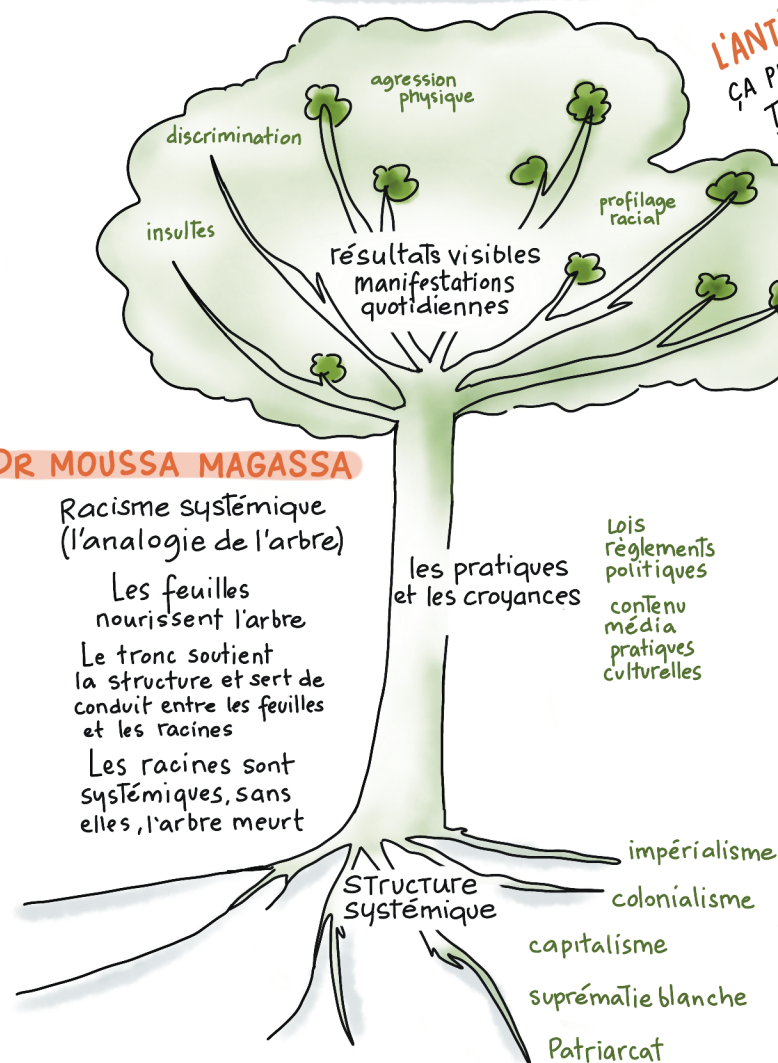 L'ANT
ÇA P
agression
physique
discrimination
insultes
profilage
racial
résultats visibles
manifestations
quotidiennes
DR MOUSSA MAGASSA
Racisme systémique
(l'analogie de l'arbre)
Les feuilles
nourissent l'arbre
Le tronc soutient
la structure et sert de
conduit entre les feuilles
et les racines
Les racines sont
systémiques, sans
elles, l'arbre meurt
les pratiques
et les croyances
Lois
règlements
politiques
contenu
média
pratiques
culturelles
Structure
systémique
impérialisme
colonialisme
capitalisme
suprématie blanche
Patriarcat